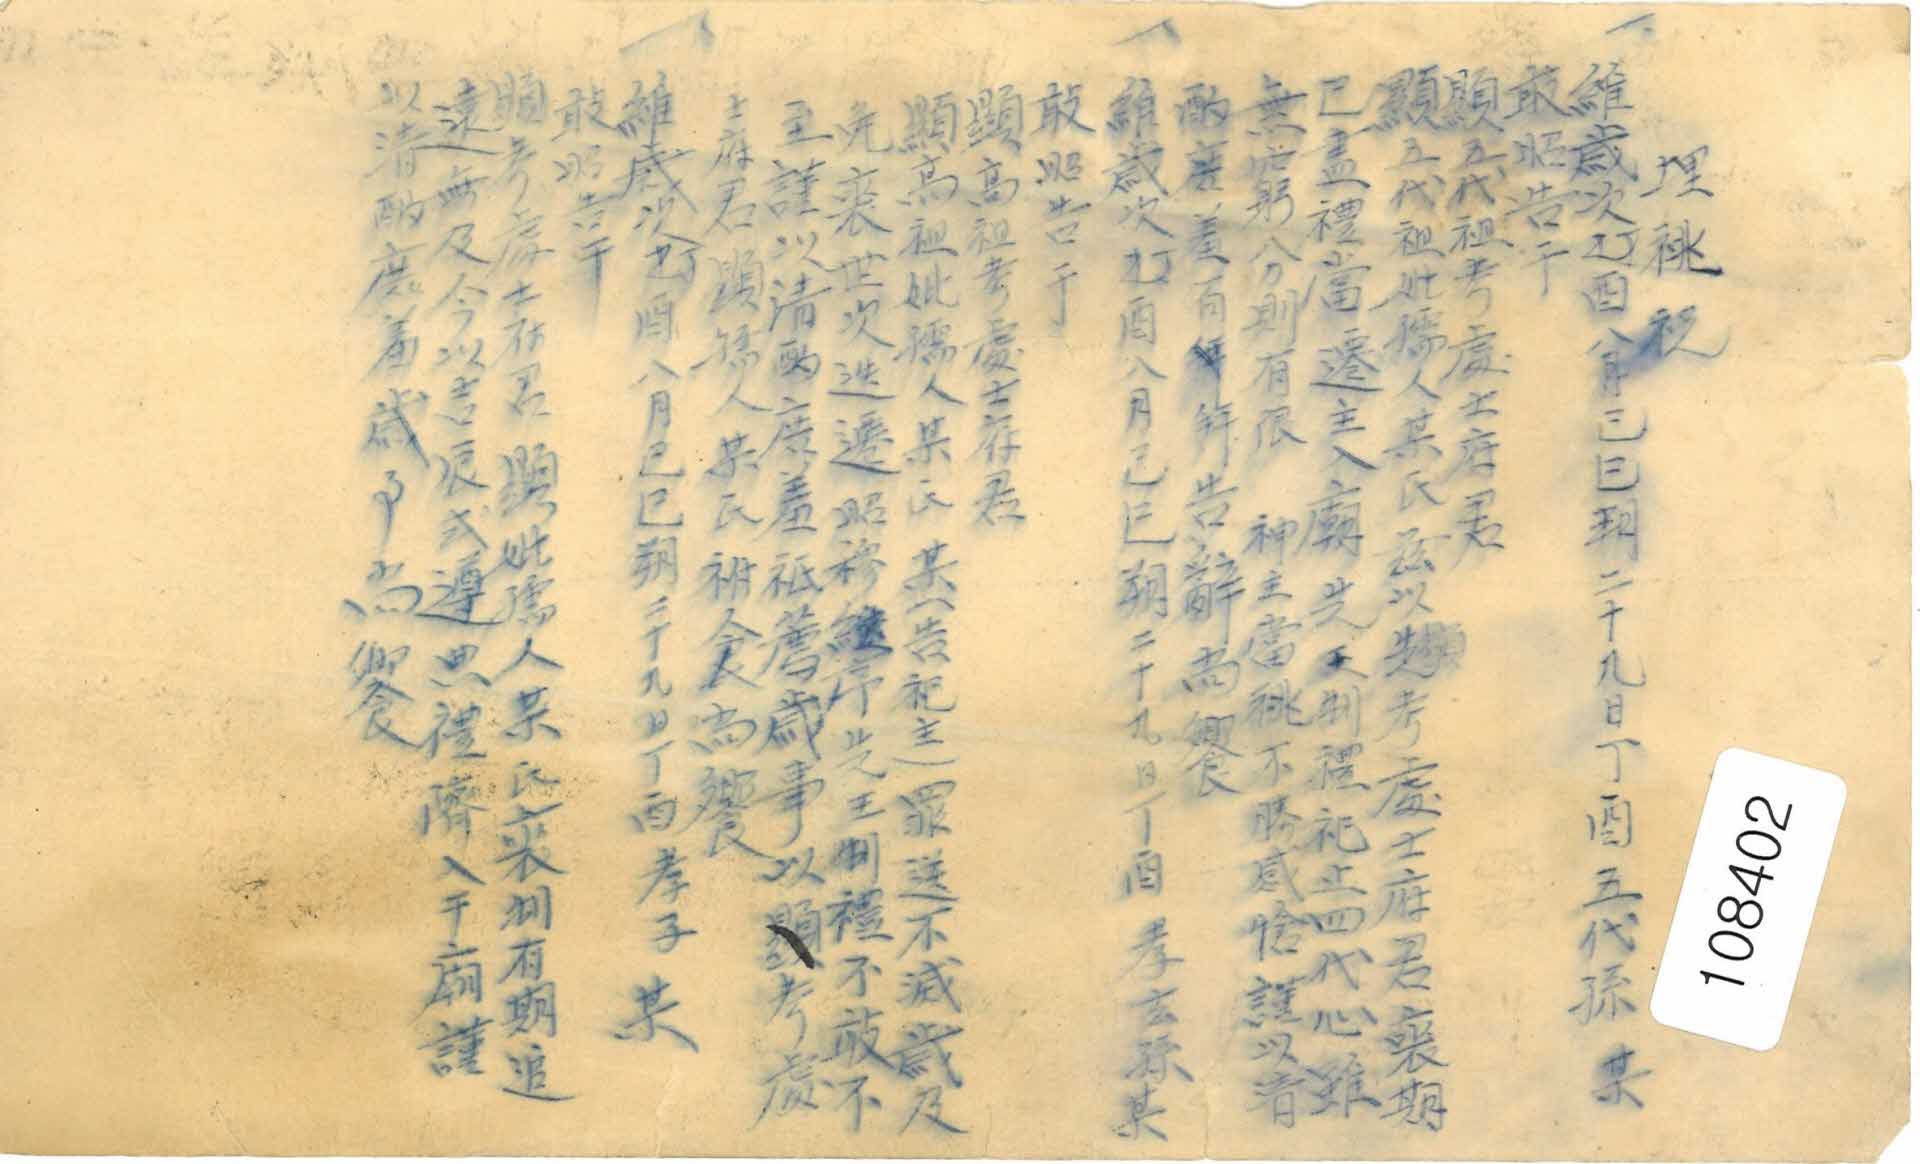 埋祧祝
維歲次丁酉八月己巳朔二十九日丁酉五代孫 某
敢昭告于
顯五代祖考處士府君
顯五代祖妣孺人某氏 玆以先考處士府君喪期
已盡禮當遷主入廟先王制禮祀止四代心雖
無窮分則有限 神主當祧不勝感愴謹以清
酌庶羞百拜告辭尚饗
維歲次丁酉八月己巳朔二十九日丁酉 孝玄孫某
敢昭告于
顯高祖考處士府君
顯高祖妣孺人某氏 某 罪逆不滅歲及
免喪世次迭遷昭穆繼序先王制禮不敢不
至謹以清酌庶羞祗薦歲事以顯考處
士府君顯孺人某氏祔食尚饗
維歲次丁酉八月己巳朔二十九日丁酉 孝子 某
敢昭告于
顯考處士府君 顯妣孺人某氏喪制有期追
遠無及今以吉辰式遵典禮隮入于廟謹
以清酌庶羞歲事尚饗
108402